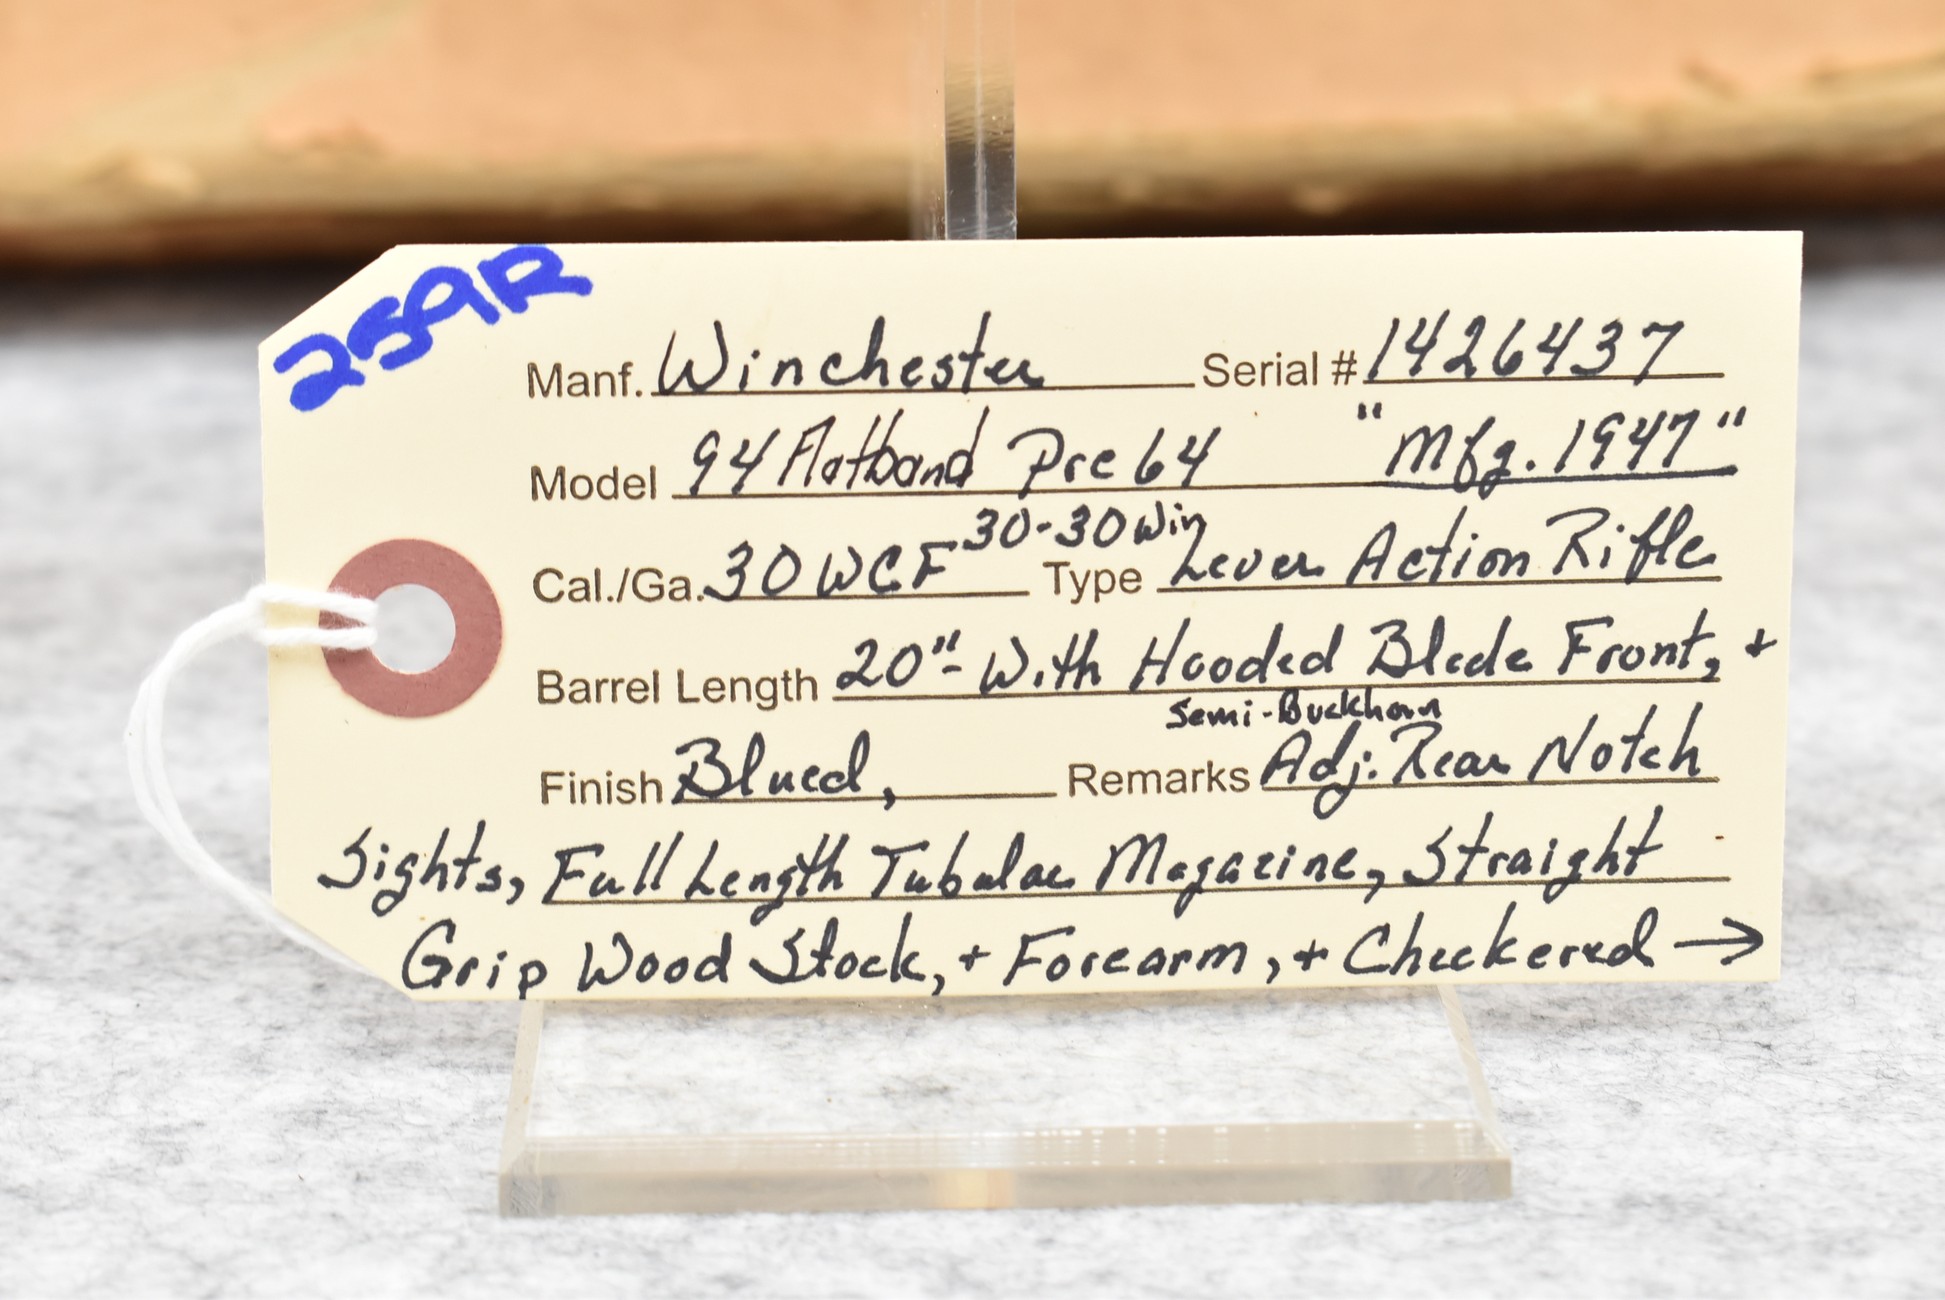 259R
Manf. Winchester Serial # 1426437
Model 94 Flatband Pre 64 "Mfg. 1947"
Cal./Ga. 30 WCF 30-30 Win Type Lever Action Rifle
Barrel Length 20"- With Hooded Blade Front, +
Semi-Buckhorn
Finish Blued, Remarks Adj. Rear Notch
Sights, Full Length Tubular Magazine, Straight
Grip Wood Stock, + Forearm, + Checkered →